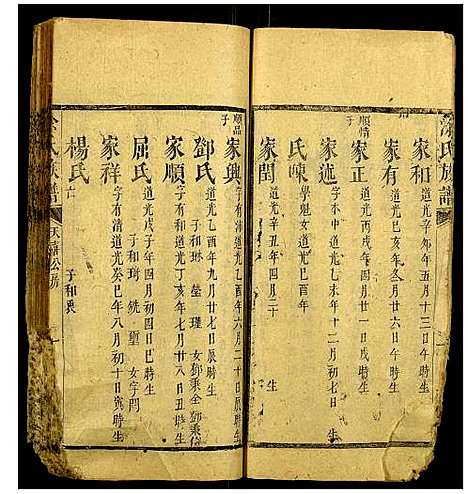 涂氏族譜
家和 道光辛卯年五月十三日午時生
家有 道光己亥年六月初六日午時生
順情子
家正 道光丙戌年四月廿一日戌時生
家述 字本中道光乙未年十二月初七日 生
氏陳
家閏 道光辛丑年四月二十 生
順品子
家興 字有清道光乙酉年六月二十日辰時生
鄧氏 道光乙酉年九月廿七日辰時生
子和琳 瑩 瑾 女鄧秉全 鄧秉倫
家順 字有和道光丁亥年七月廿八日丑時生
屈氏 道光戊子年四月初四日巳時生
子和琦 銑 璽 女字閆
家祥 字有清道光癸巳年八月初十日寅時生
楊氏 亡
子和裘
涂氏族譜
天蘭公房